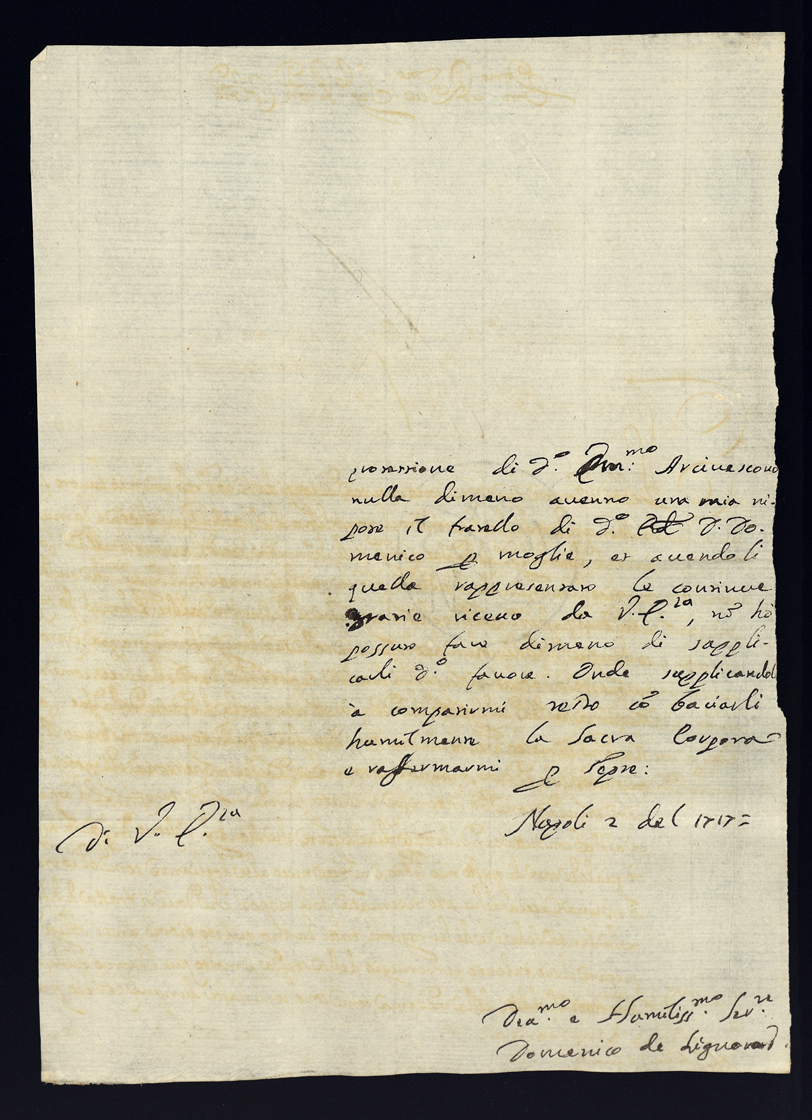 possessione di d.º Em.mo Arcivescovo
nulla dimeno avenno una mia ni-
pote il fratello di d.º D. Do-
menico p moglie, et avendoli
quella rappresentato le continue
grazie riceve da V. E.za, nõ hò
possuto fare dimeno di suppli-
carli d.º favore. Onde supplicandola
à compatirmi resto cõ baciarli
humilmente la Sacra Porpora
e raffermarmi p sepre:
Napoli 2 del 1717=
Di V. E.za
Dev.mo e Humiliss.mo Ser.re
Domenico de